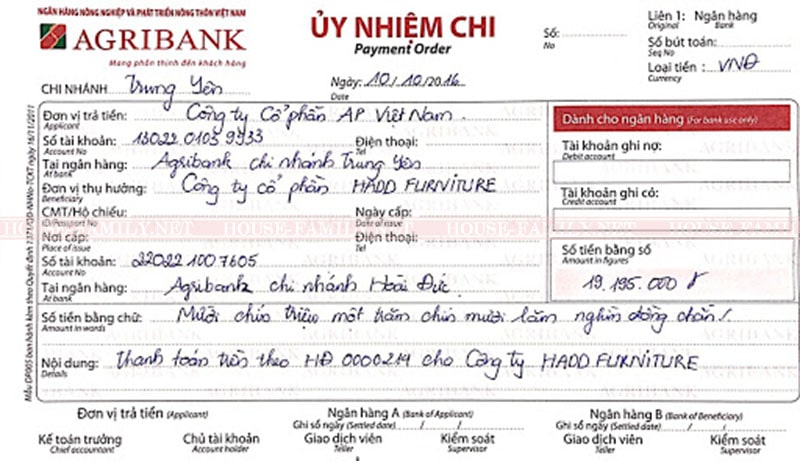 NGÂN HÀNG NÔNG NGHIỆP VÀ PHÁT TRIỂN NÔNG THÔN VIỆT NAM
AGRIBANK
Mang phồn thịnh đến khách hàng
CHI NHÁNH Trung Yên
ỦY NHIỆM CHI
Payment Order
Ngày: 10/10/2016
Date
Số:
No
Liên 1: Ngân hàng
Original Bank
Số bút toán:
Seq No
Loại tiền: VNĐ
Currency
Đơn vị trả tiền: Công ty Cổ phần AP Việt Nam.
Applicant
Số tài khoản: 15022 0105 9333 Điện thoại:
Account No Tel
Tại ngân hàng: Agribank chi nhánh Trung Yên
At bank
Đơn vị thụ hưởng: Công ty cổ phần HADD FURNITURE
Beneficiary
CMT/Hộ chiếu: Ngày cấp:
ID/Passport No Date of issue
HOUSE-FAMILY.NET HOUSE-FAMILY.NET HOUSE-FAMILY.NET
Nơi cấp: Điện thoại:
Place of issue Tel
Số tài khoản: 22022 100 7605
Account No
Tại ngân hàng: Agribank chi nhánh Hoài Đức.
At bank
Dành cho ngân hàng (For bank use only)
Tài khoản ghi nợ:
Debit account
Tài khoản ghi có:
Credit account
Số tiền bằng số
Amount in figures
19.195.000 đ
Số tiền bằng chữ: Mười chín triệu một trăm chín mươi lăm nghìn đồng chẵn!
Amount in words
Nội dung: Thanh toán tiền theo HĐ 0000219 cho Công ty HADD FURNITURE
Details
Đơn vị trả tiền (Applicant)
Kế toán trưởng Chủ tài khoản
Chief accountant Account holder
Ngân hàng A (Bank of Applicant)
Ghi sổ ngày (Settled date) / /
Giao dịch viên Kiểm soát
Teller Supervisor
Ngân hàng B (Bank of Beneficiary)
Ghi sổ ngày (Settled date) / /
Giao dịch viên Kiểm soát
Teller Supervisor